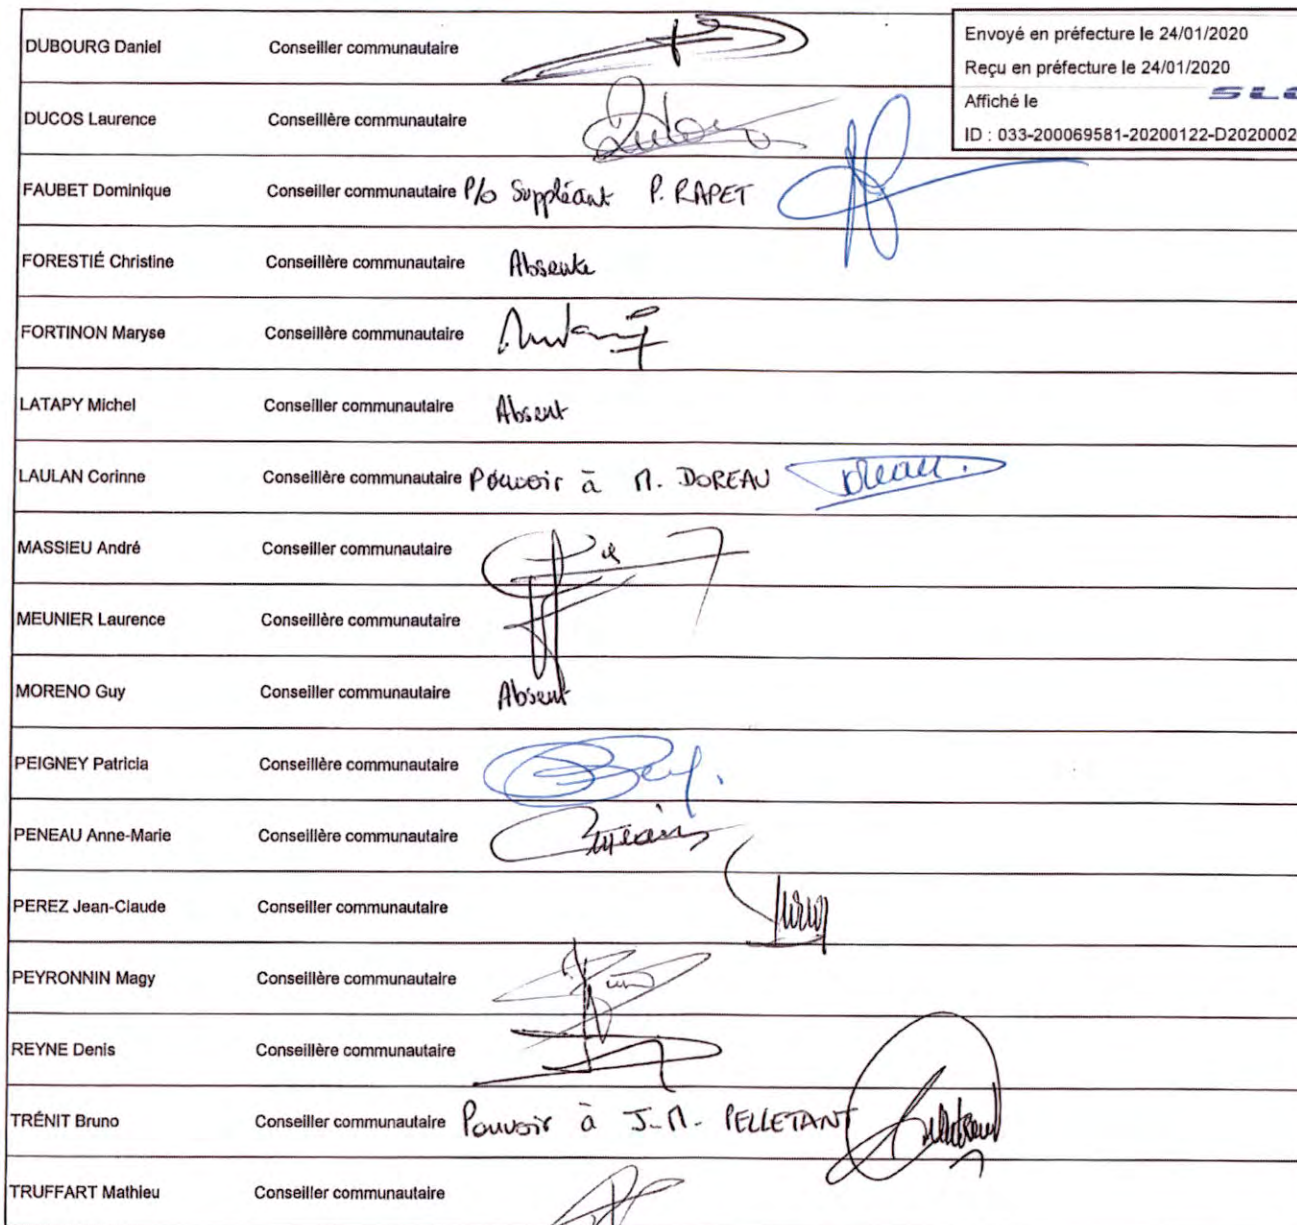 Envoyé en préfecture le 24/01/2020
Reçu en préfecture le 24/01/2020
Affiché le
ID : 033-200069581-20200122-D2020002
DUBOURG Daniel Conseiller communautaire
DUCOS Laurence Conseillère communautaire
FAUBET Dominique Conseiller communautaire P/o Suppléant P. RAPET
FORESTIÉ Christine Conseillère communautaire Absente
FORTINON Maryse Conseillère communautaire
LATAPY Michel Conseiller communautaire Absent
LAULAN Corinne Conseillère communautaire Pouvoir à M. DOREAU
MASSIEU André Conseiller communautaire
MEUNIER Laurence Conseillère communautaire
MORENO Guy Conseiller communautaire Absent
PEIGNEY Patricia Conseillère communautaire
PENEAU Anne-Marie Conseillère communautaire
PEREZ Jean-Claude Conseiller communautaire
PEYRONNIN Magy Conseillère communautaire
REYNE Denis Conseillère communautaire
TRÉNIT Bruno Conseiller communautaire Pouvoir à J-M. PELLETANT
TRUFFART Mathieu Conseiller communautaire